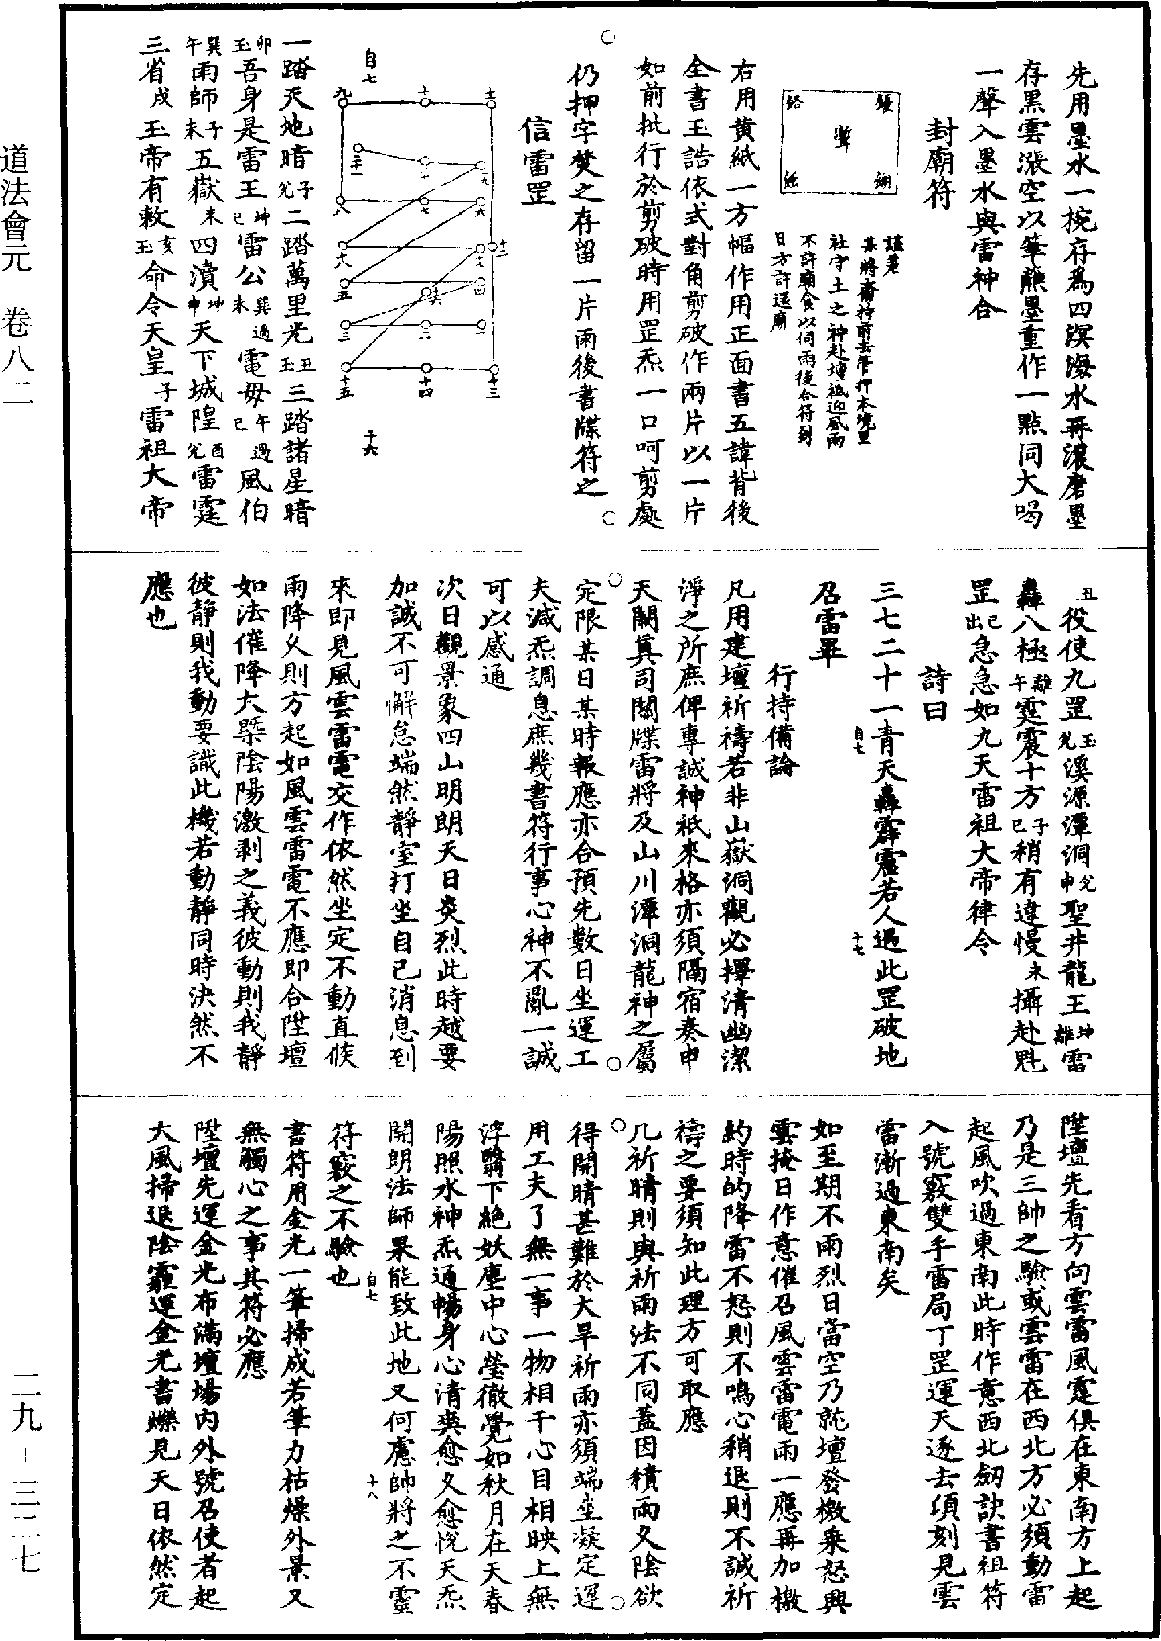 道法會元　卷八二
二九－三二七
先用墨水一椀存爲四溟海水再濃磨墨
存黑雲漲空以筆蘸墨重作一點同大喝
一聲入墨水與雷神合
封廟符
謹差
某將齎符前去管押本境里
社守土之神赴壇祗迎風雨
不許廟食以伺雨後合符到
日方許還廟
右用黄紙一方幅作用正面書五諱背後
全書玉誥依式對角剪破作兩片以一片
如前批行於剪破時用罡炁一口呵剪處
仍押字焚之存留一片雨後書牒符之
信雷罡
自七
十六
一踏天地暗子兌二踏萬里光丑玉三踏諸星暗
卯玉吾身是雷王坤巳雷公巽過未電母午過巳風伯
巽午雨師子未五嶽未四瀆坤申天下城隍酉兌雷霆
三省戌玉帝有敕亥玉命令天皇子雷祖大帝
丑役使九罡玉兌溪源潭洞兌申聖井龍王坤離雷
轟八極離午霆震十方子巳稍有違慢未攝赴魁
罡巳出急急如九天雷祖大帝律令
詩曰
三七二十一青天轟霹靂若人遇此罡破地
召雷畢
自七
十七
行持備論
凡用建壇祈禱若非山嶽洞觀必擇清幽潔
淨之所庶俾專誠神祇來格亦須隔宿奏申
天闕真司關牒雷將及山川潭洞龍神之屬
定限某日某時報應亦合預先數日坐運工
夫減炁調息庶幾書符行事心神不亂一誠
可以感通
次日觀景象四山明朗天日炎烈此時越要
加誠不可懈怠端然靜室打坐自己消息到
來即見風雲雷電交作依然坐定不動直候
雨降乆則方起如風雲雷電不應即合陞壇
如法催降大槩陰陽激剥之義彼動則我靜
彼靜則我動要識此機若動靜同時決然不
應也
陞壇先看方向雲雷風霆俱在東南方上起
乃是三帥之驗或雲雷在西北方必須動雷
起風吹過東南此時作意西北劒訣書祖符
入號竅雙手雷局丁罡運天逐去頃刻見雲
當漸過東南矣
如至期不雨烈日當空乃就壇發檄乘怒興
雲掩日作意催召風雲雷電雨一應再加檄
約時的降雷不怒則不鳴心稍退則不誠祈
禱之要須知此理方可取應
凡祈晴則與祈雨法不同蓋因積雨乆陰欲
得開晴甚難於大旱祈雨亦須端坐凝定運
用工夫了無一事一物相干心目相映上無
浮翳下絶妖塵中心瑩徹覺如秋月在天春
陽照水神炁通暢身心清爽愈乆愈悅天炁
開朗法師果能致此地又何慮帥將之不靈
符竅之不驗也
自七
十八
書符用金光一筆掃成若筆力枯燥外景又
無觸心之事其符必應
陞壇先運金光布滿壇場内外號召使者起
大風掃退陰霾運金光書爍見天日依然定